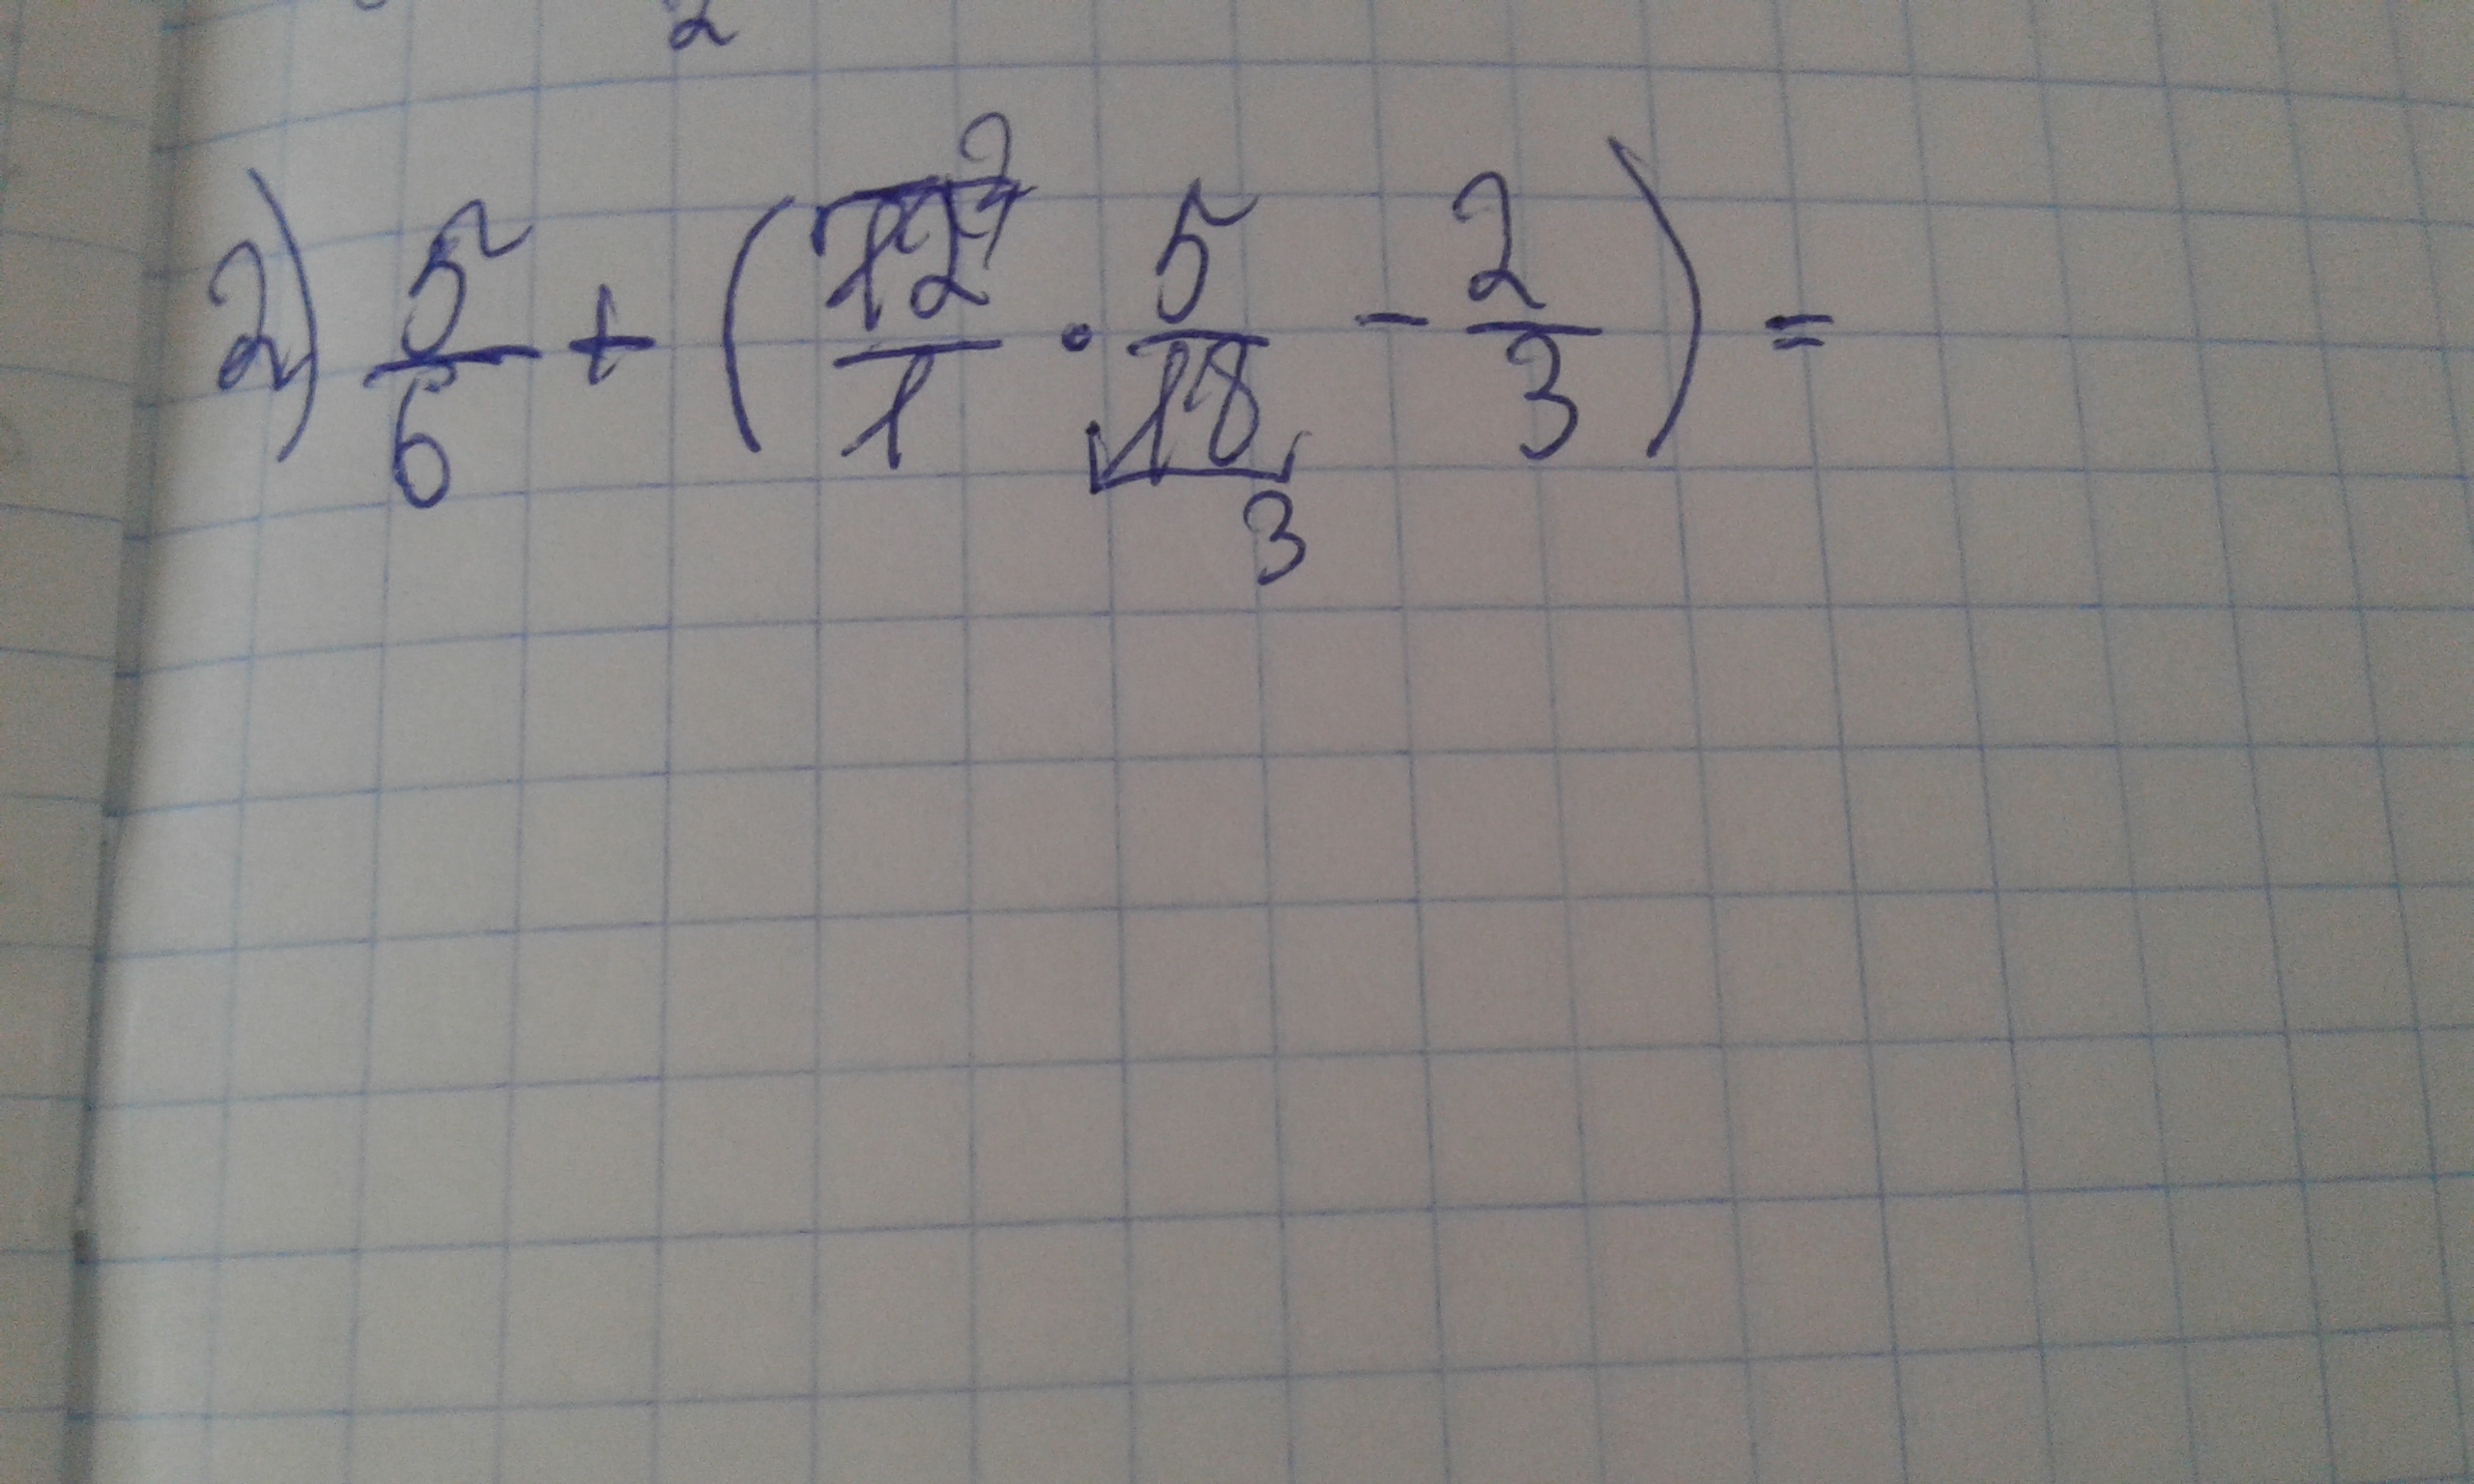 2
2) 5/6 + ( 12/1 2 · 5/18 3 - 2/3 ) =